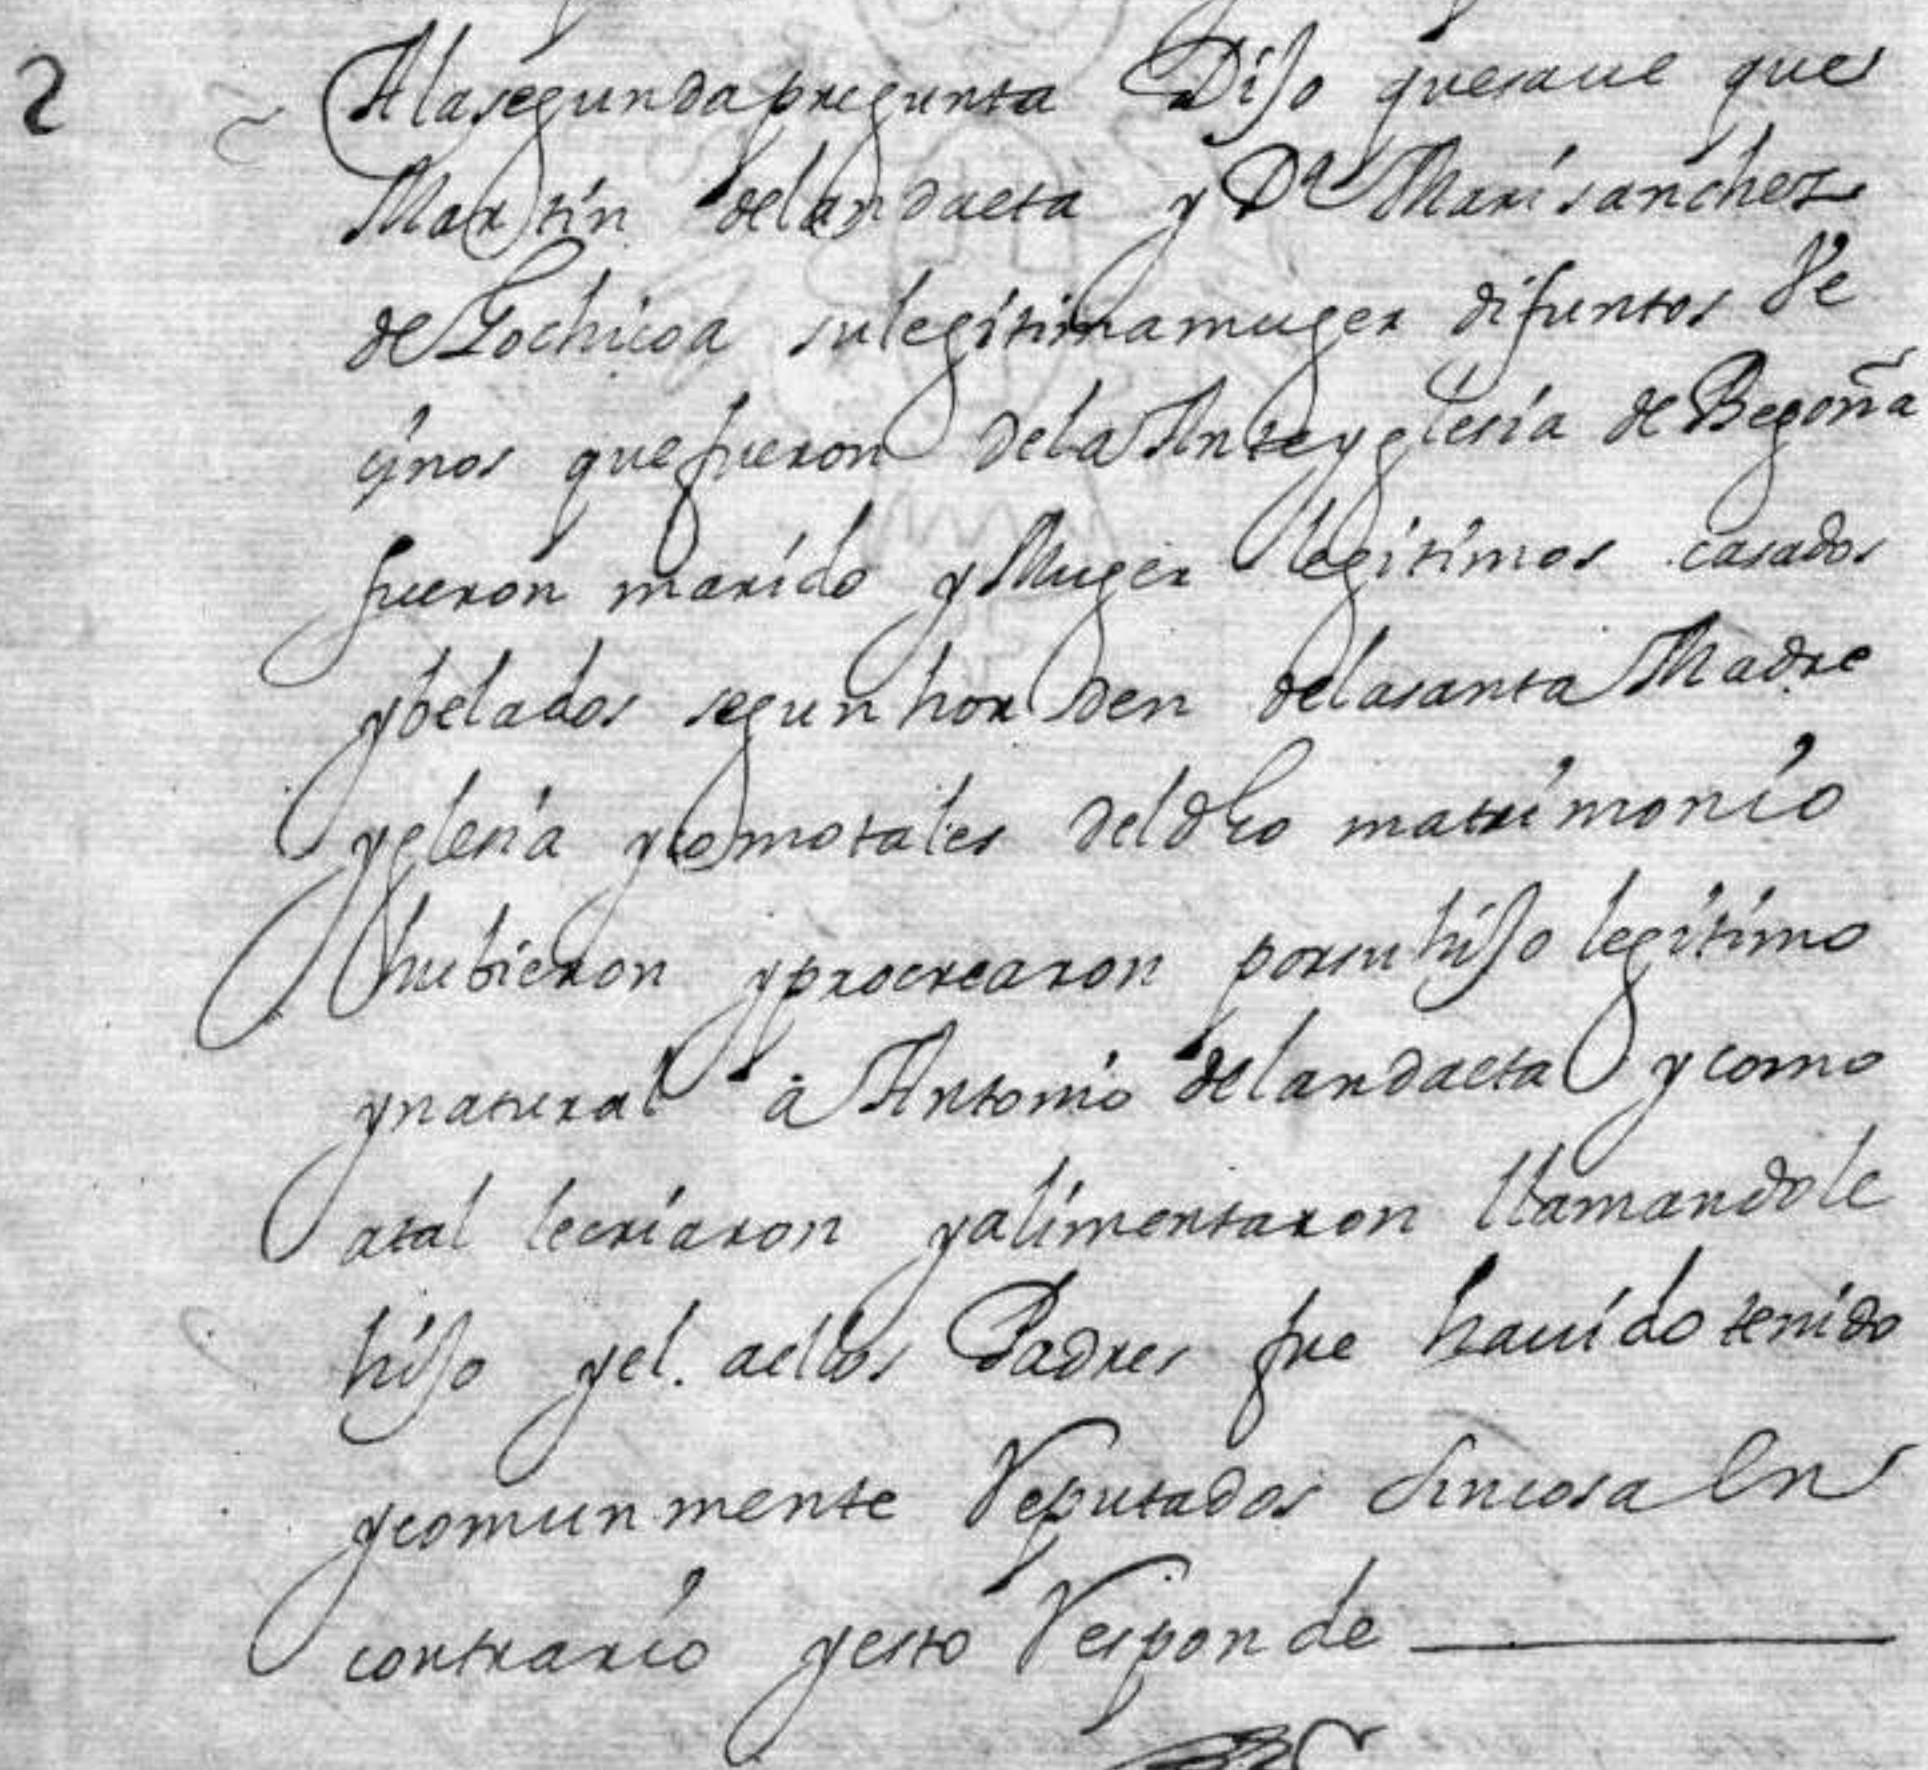 2 A la segunda pregunta Dijo que saue que
Martin de landaeta y Dª Mari sanchez
de Gochicoa su legitima muger difuntos Ve
çinos que fueron de la Anteyglesia de Begoña
fueron marido y Muger legitimos casados
y belados segun horden de la santa Madre
yglesia y como tales del dho matrimonio
hubieron y procrearon por su hijo legitimo
y natural a Antonio de landaeta y como
a tal le criaron y alimentaron llamandole
hijo y el. a ellos Padres fue hauido tenido
y comunmente Reputados sin cosa En
contrario y esto Responde